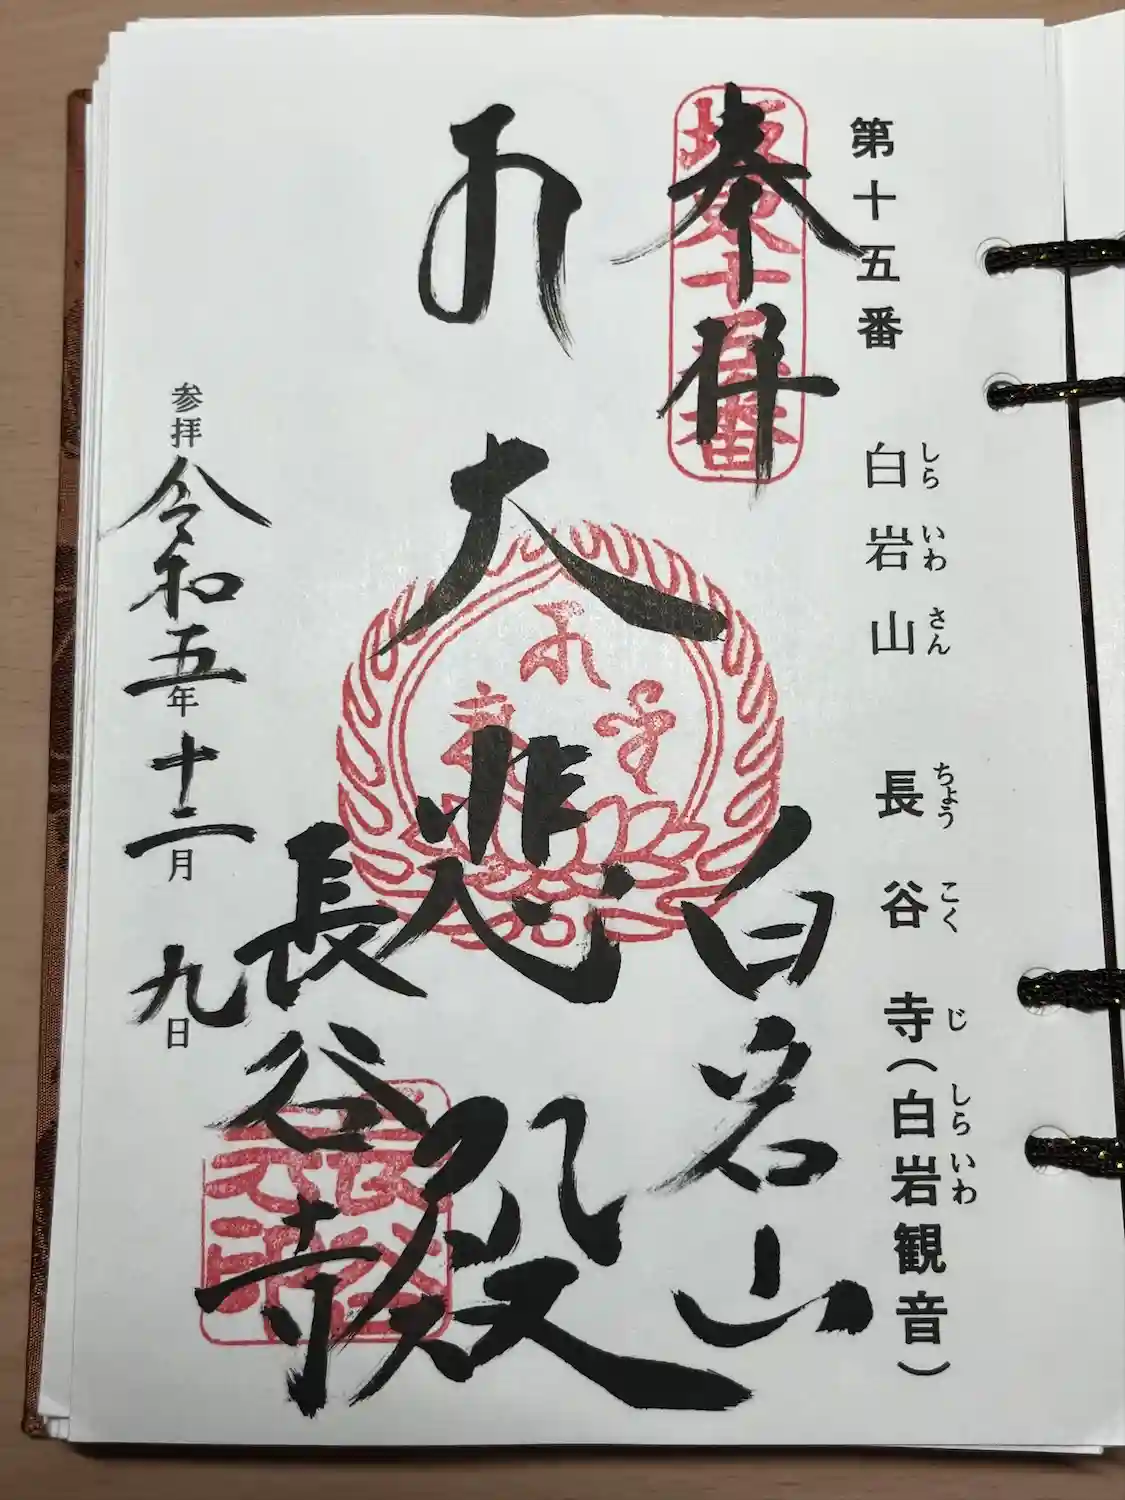 第十五番 白岩山 長谷寺（白岩観音）
しらいわさん ちょうこくじ しらいわ
奉拝
坂東十五番
白岩山
大悲殿
長谷寺
参拝 令和五年十二月九日